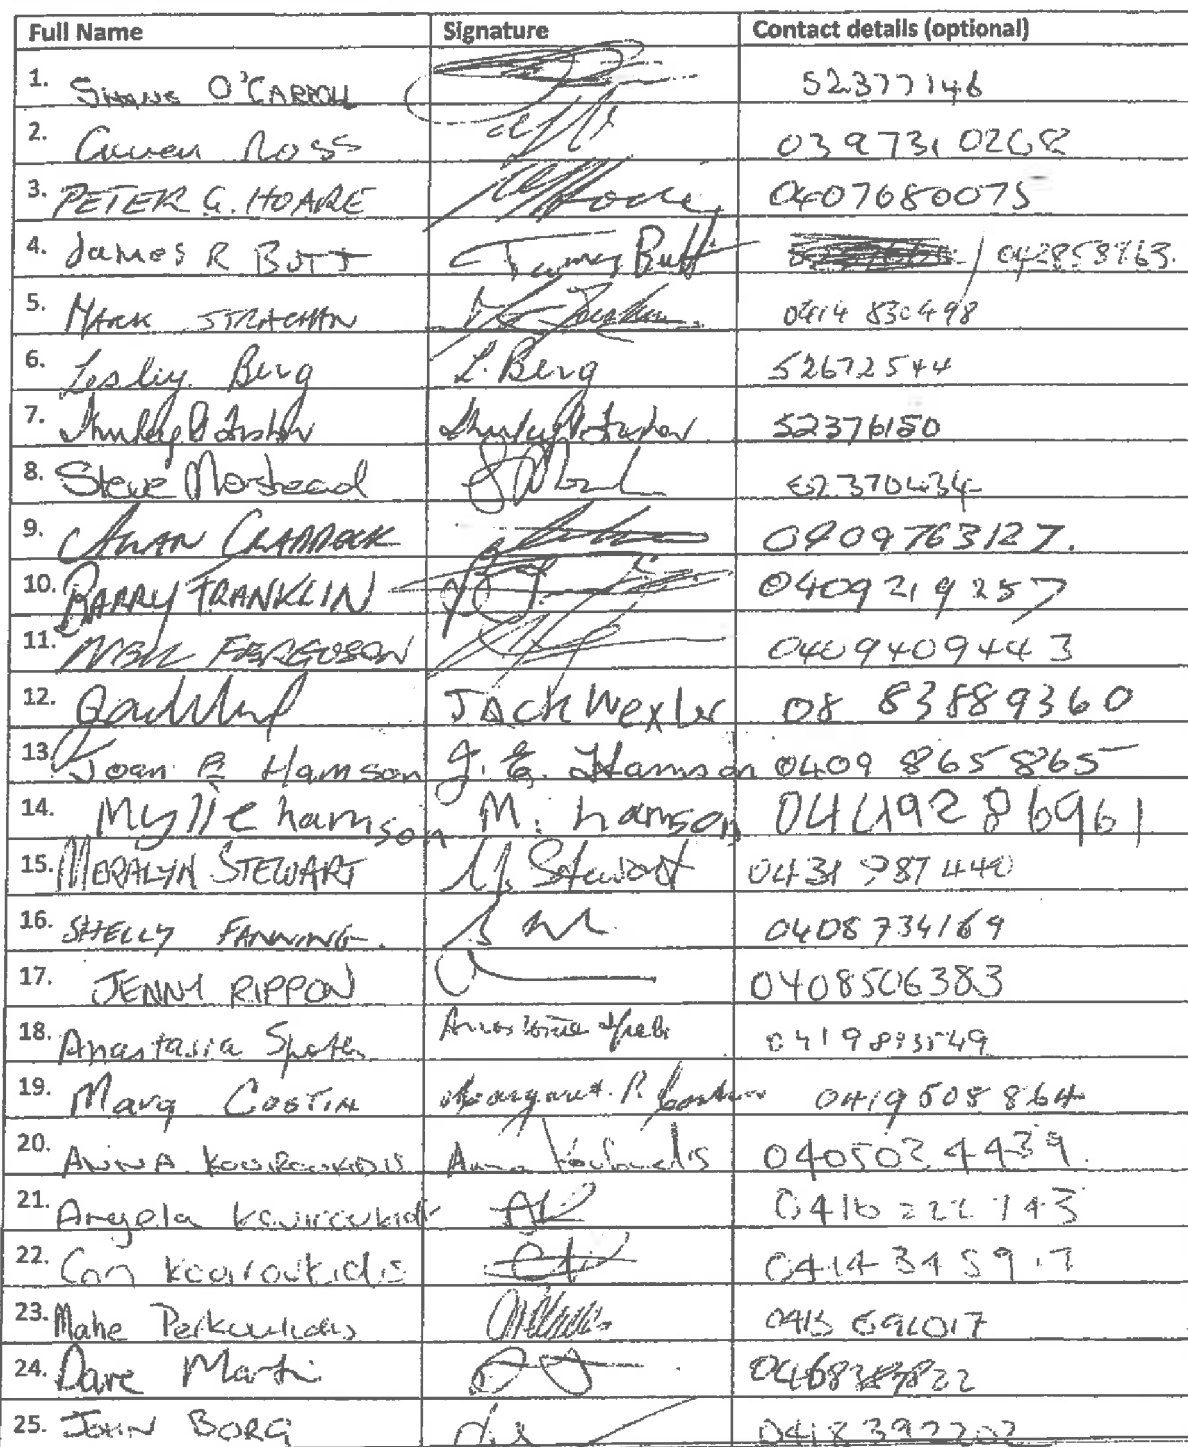 Full Name Signature Contact details (optional)
1. SHANE O'CARROLL 52377146
2. Gwen Ross 0397310268
3. PETER G. HOARE Hoare 0407680075
4. James R BUTT James Butt / 042858763.
5. MARK STRACHAN 0414 830498
6. Lesley Berg L. Berg 52672544
7. 52376150
8. Steve Morstead 52370434
9. ALAN CRADDOCK 0409763127.
10. BARRY FRANKLIN 0409219257
11. NEIL FERGUSON 0409409443
12. JACK Wexler 08 83889360
13. Joan E Hamson J. E. Hamson 0409 865865
14. Myllie hamson M. hamson 0449286961
15. MERALYN STEWART M Stewart 0431 987440
16. SHELLY FANNING. 0408734169
17. JENNY RIPPON 0408506383
18. Anastasia
19. Marg COSTIN Margaret. P. Costin 0419508864
20. ANNA KOUROUKIDIS Anna 0405024439.
21. Angela Kouroukidis AK 0416 222 743
22. Con Kouroukidis CK
23.
24. Dave Martin
25. JOHN BORG 0418392202